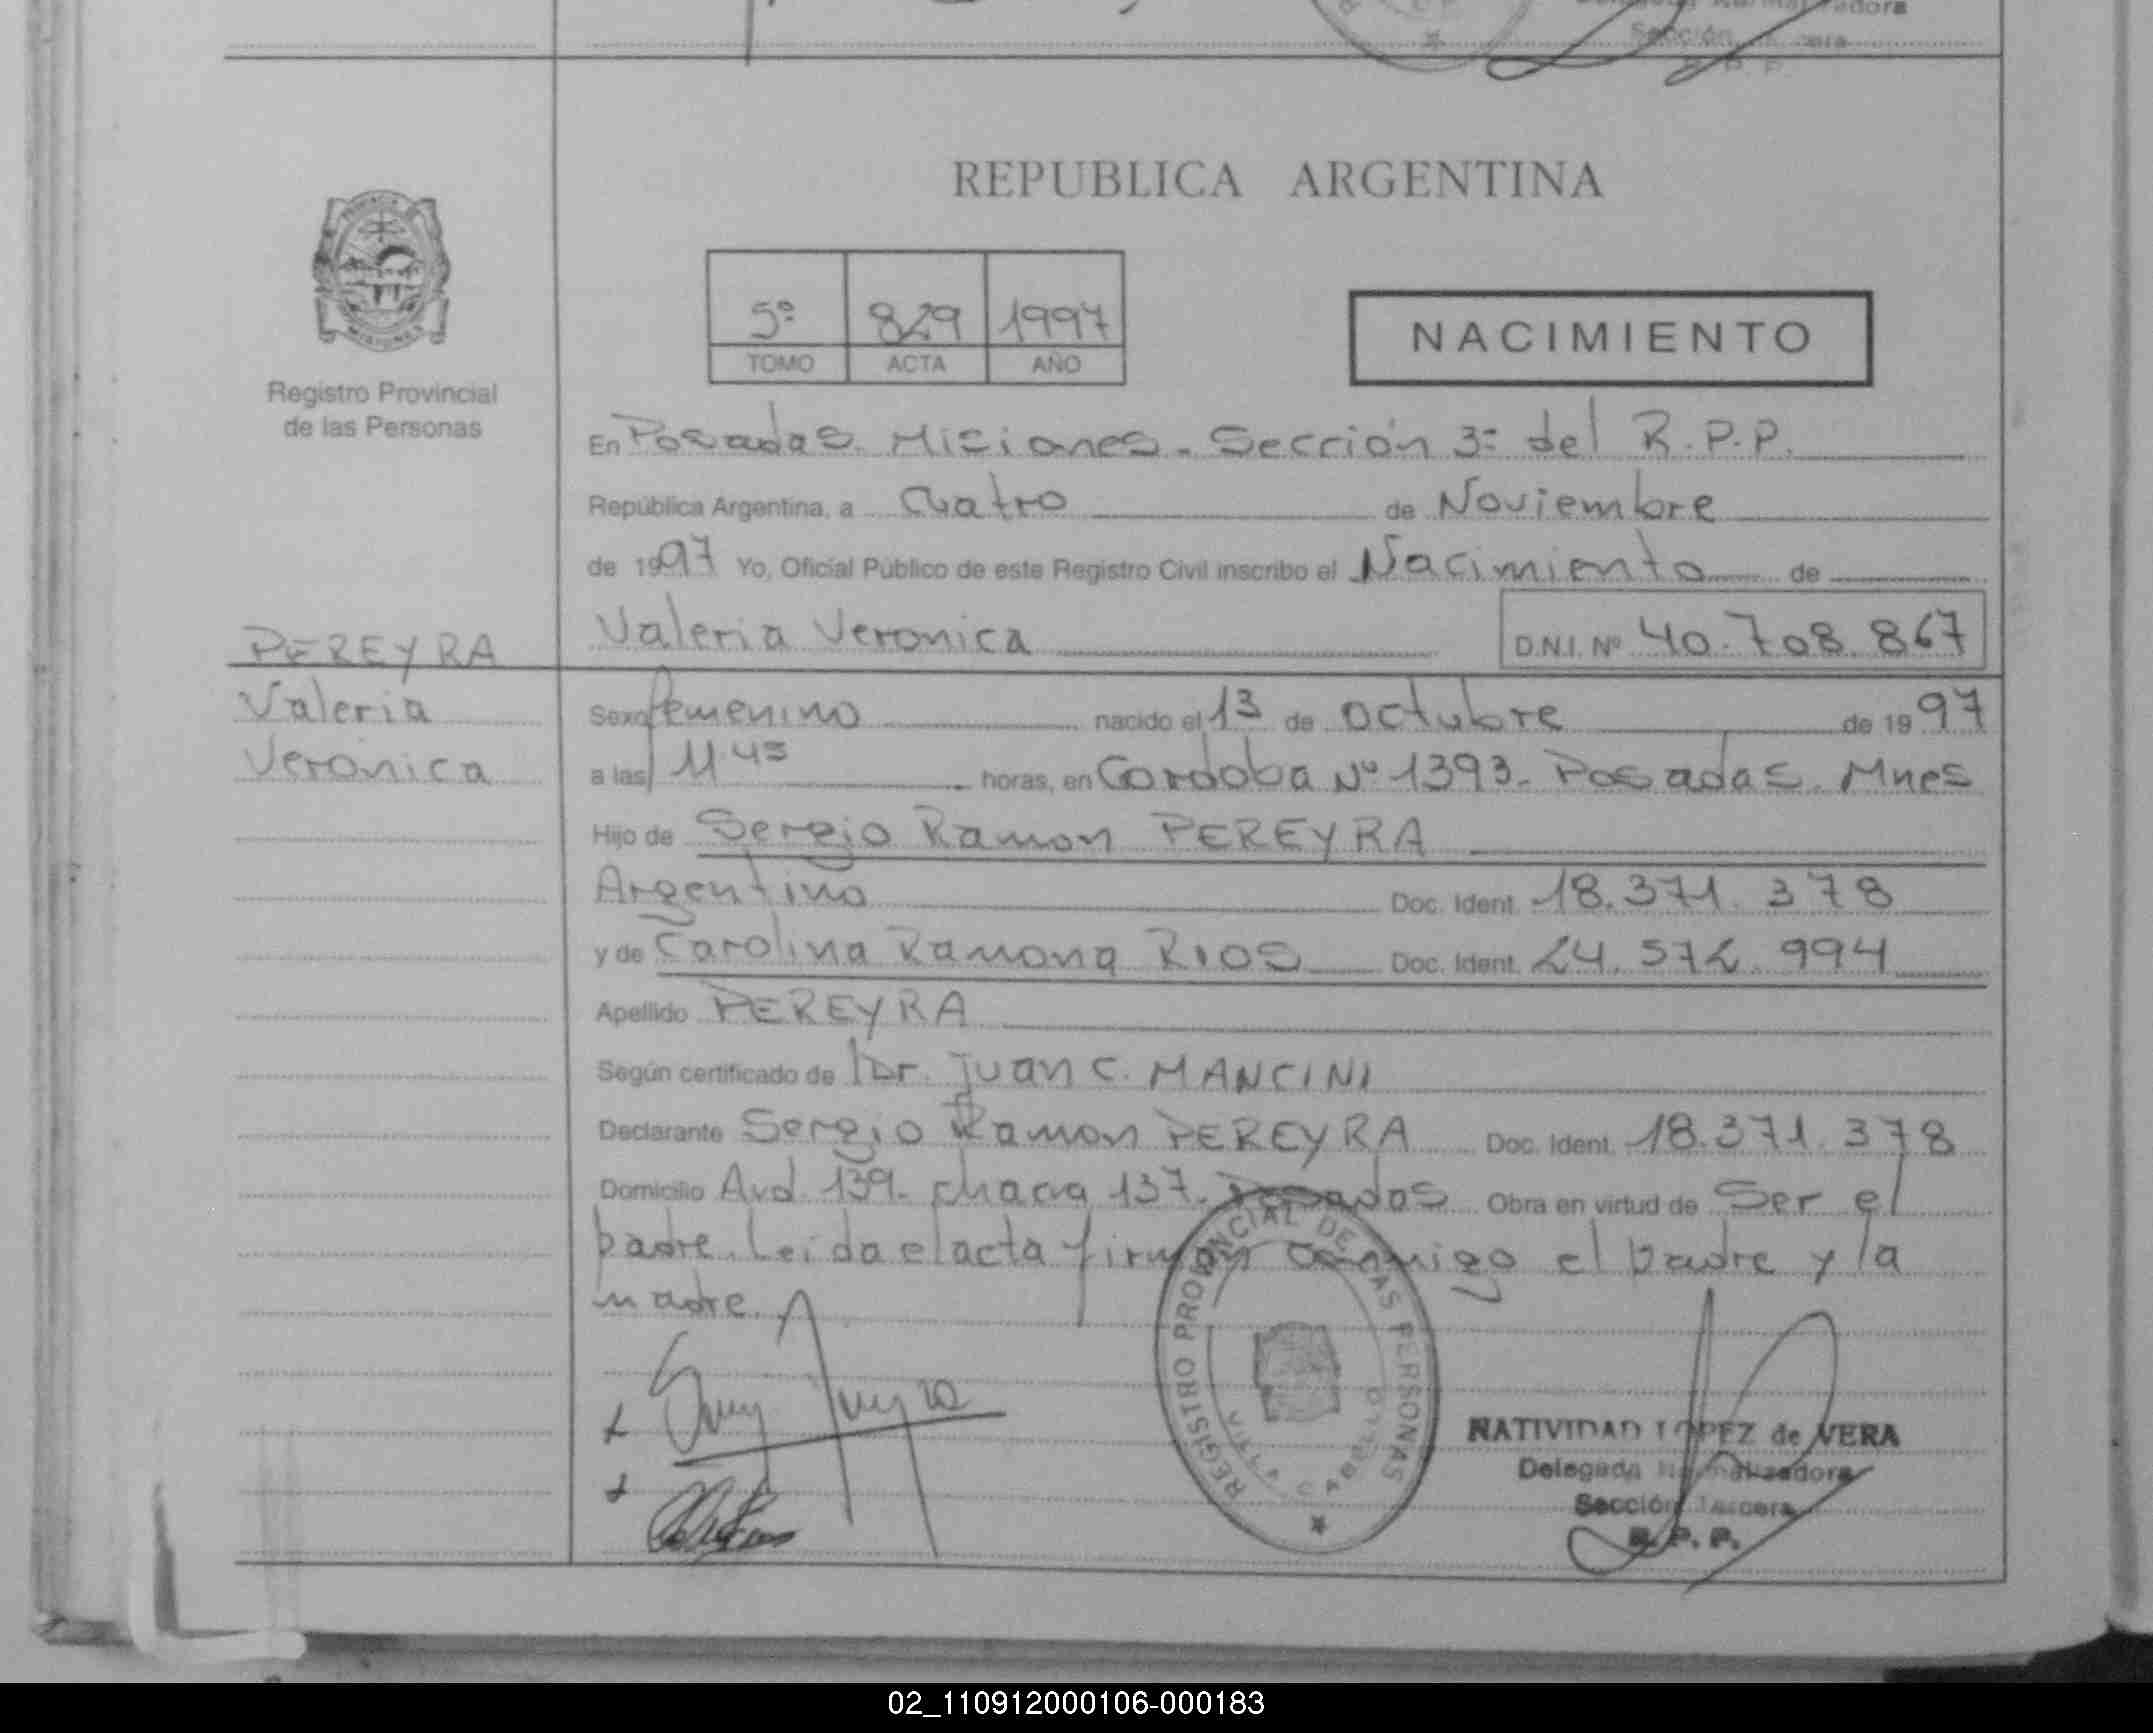 Sección
REPUBLICA ARGENTINA
5º 829 1997
TOMO ACTA AÑO
NACIMIENTO
Registro Provincial
de las Personas
En Posadas. Misiones. Sección 3ª del R.P.P.
República Argentina, a Cuatro de Noviembre
de 1997 Yo, Oficial Público de este Registro Civil inscribo el Nacimiento de
PEREYRA
Valeria
Veronica
Valeria Veronica D.N.I. Nº 40.708.867
Sexo femenino nacido el 13 de octubre de 1997
a las 11.45 horas, en Cordoba Nº 1393. Posadas. Mnes
Hijo de Sergio Ramon PEREYRA
Argentino Doc. Ident. 18.371.378
y de Carolina Ramona RIOS Doc. Ident. 24.572.994
Apellido PEREYRA
Según certificado de Dr. Juan C. MANCINI
Declarante Sergio Ramon PEREYRA Doc. Ident. 18.371.378
Domicilio Avd. 139. chacra 137. Posadas Obra en virtud de Ser el
padre. Leida el acta firman conmigo el padre y la
madre.
REGISTRO PROVINCIAL DE LAS PERSONAS
VILLA CABELLO
NATIVIDAD LOPEZ de VERA
Delegada Normalizadora
Sección Tercera
R. P. P.
02_110912000106-000183